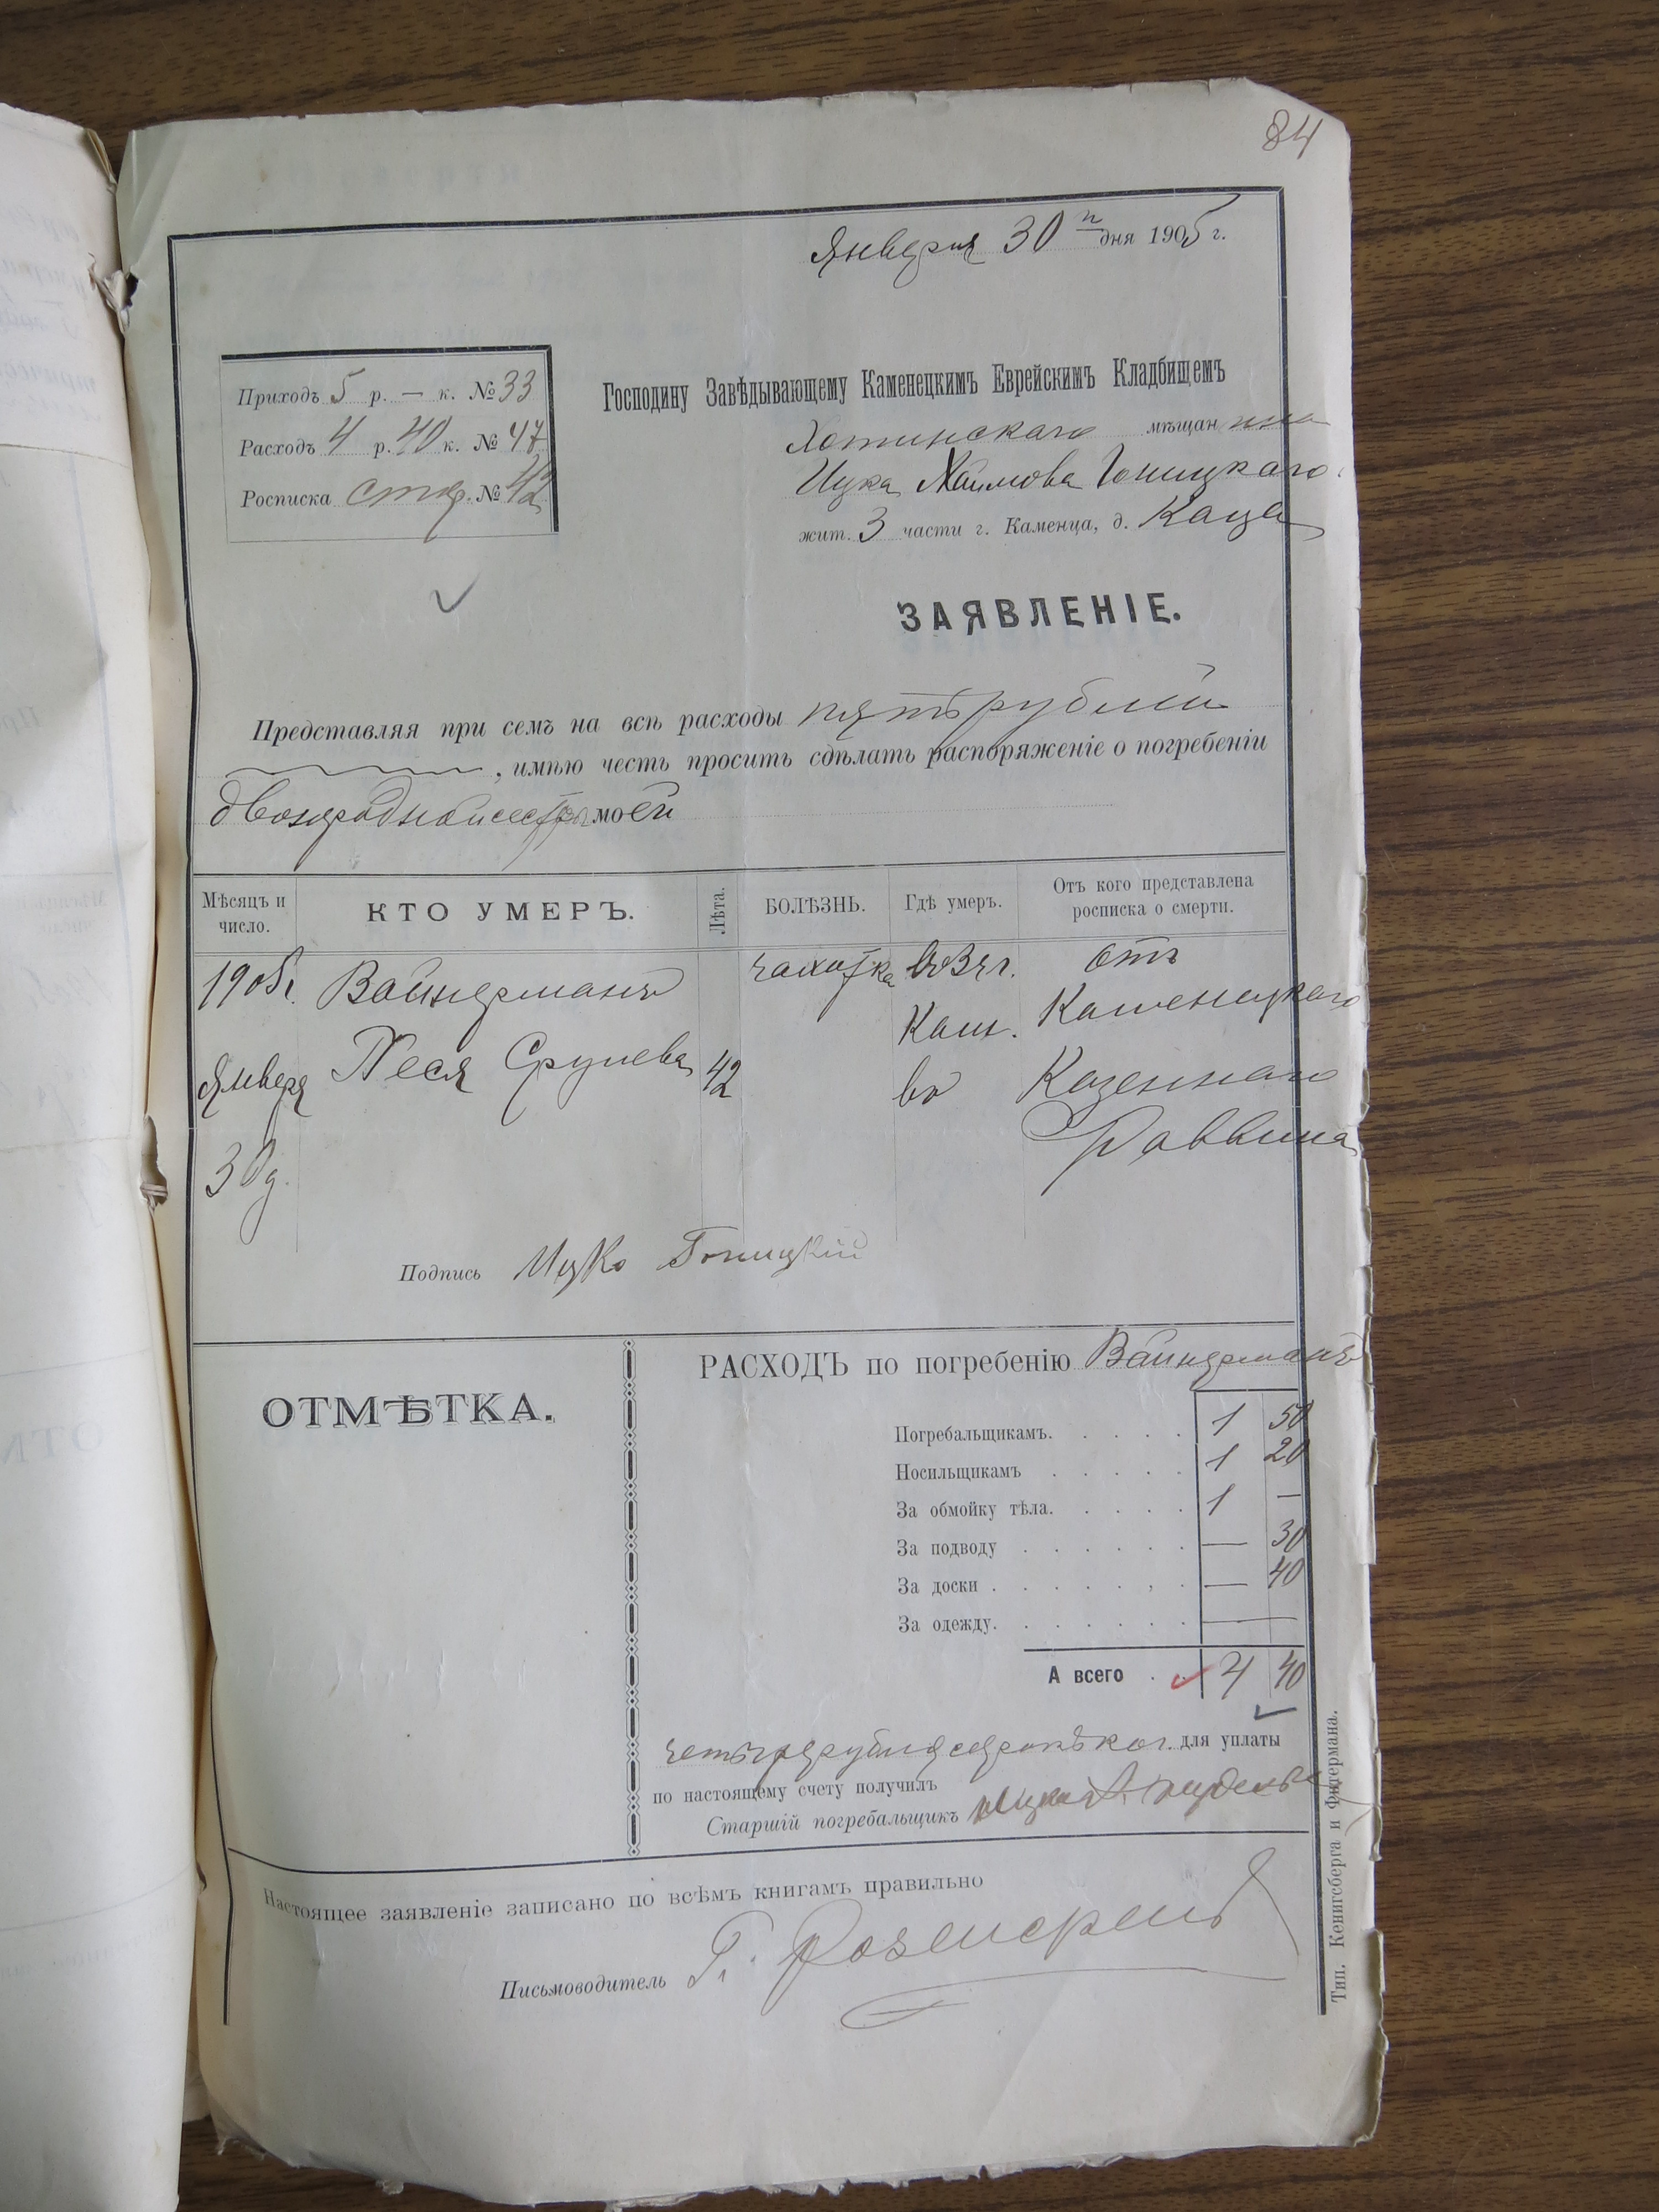 84
Января 30 го дня 1905 г.
Приходъ 5 р. — к. № 33
Расходъ 4 р. 40 к. № 47
Росписка стар. № 42
Господину Завѣдывающему Каменецкимъ Еврейскимъ Кладбищемъ
Хотинскаго мѣщанина
Ицка Хаимова Гоницкаго
жит. 3 части г. Каменца, д. Каца
ЗАЯВЛЕНІЕ.
Представляя при семъ на всѣ расходы пять рублей
, имѣю честь просить сдѣлать распоряженіе о погребеніи
двоюродной сестры моей
Мѣсяцъ и число.
КТО УМЕРЪ.
Лѣта.
БОЛѢЗНЬ.
Гдѣ умеръ.
Отъ кого представлена росписка о смерти.
1905 г. Вайнерманъ чахотка въ 3 ч г. отъ
Кам. Каменецкаго
Января Песя Срулева 42 въ Казеннаго
Раввина
30 д.
Подпись Ицко Гоницкій
ОТМѢТКА.
РАСХОДЪ по погребенію Вайнерманъ
Погребальщикамъ. 1 50
Носильщикамъ 1 20
За обмойку тѣла. 1 —
За подводу — 30
За доски — 40
За одежду. —
А всего 4 40
четыре рубля сорокъ коп. для уплаты
по настоящему счету получилъ
Старшій погребальщикъ Ицко
Настоящее заявленіе записано по всѣмъ книгамъ правильно
Письмоводитель Г.
Тип. Кенигсберга и Фидермана.